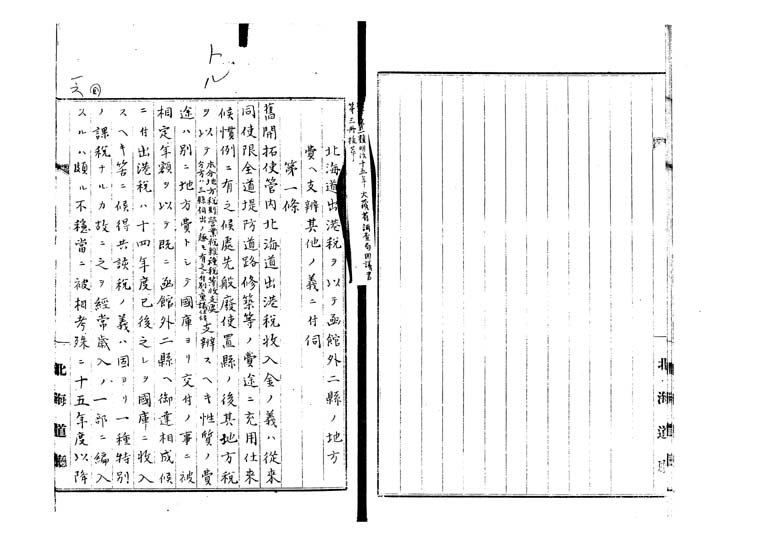 北海道出港税ヲ以テ函館外二縣ノ地方
費ヘ支辨其他ノ義ニ付伺
第一條
舊開拓使管內北海道出港税收入金ノ義ハ從來
同使限全道堤防道路修築等ノ費途ニ充用仕来
候慣例ニ有之候處先般廢使置縣ノ後其地方税
ヲ以テ支辨スヘキ性質ノ費
途ハ別ニ地方費トシテ國庫ヨリ交付ノ事ニ被
相定年額ヲ以テ既ニ函館外二縣ヘ御達相成候
ニ付出港税ハ十四年度已後之レヲ國庫ニ收入
スヘキ筈ニ候得共該税ノ義ハ固ヨリ一種特別
ノ課税ナルカ故ニ之ヲ經常歳入ノ一部ニ編入
スルハ頗ル不穩當ニ被相考殊ニ十五年度以降
北海道廳
トル